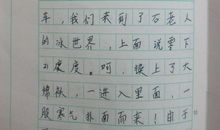 车，我们来到了石老人
的冰世界，上面说零下
21度。呵，换上了大
棉袄，一进入里面，一
股寒气扑面而来！由于